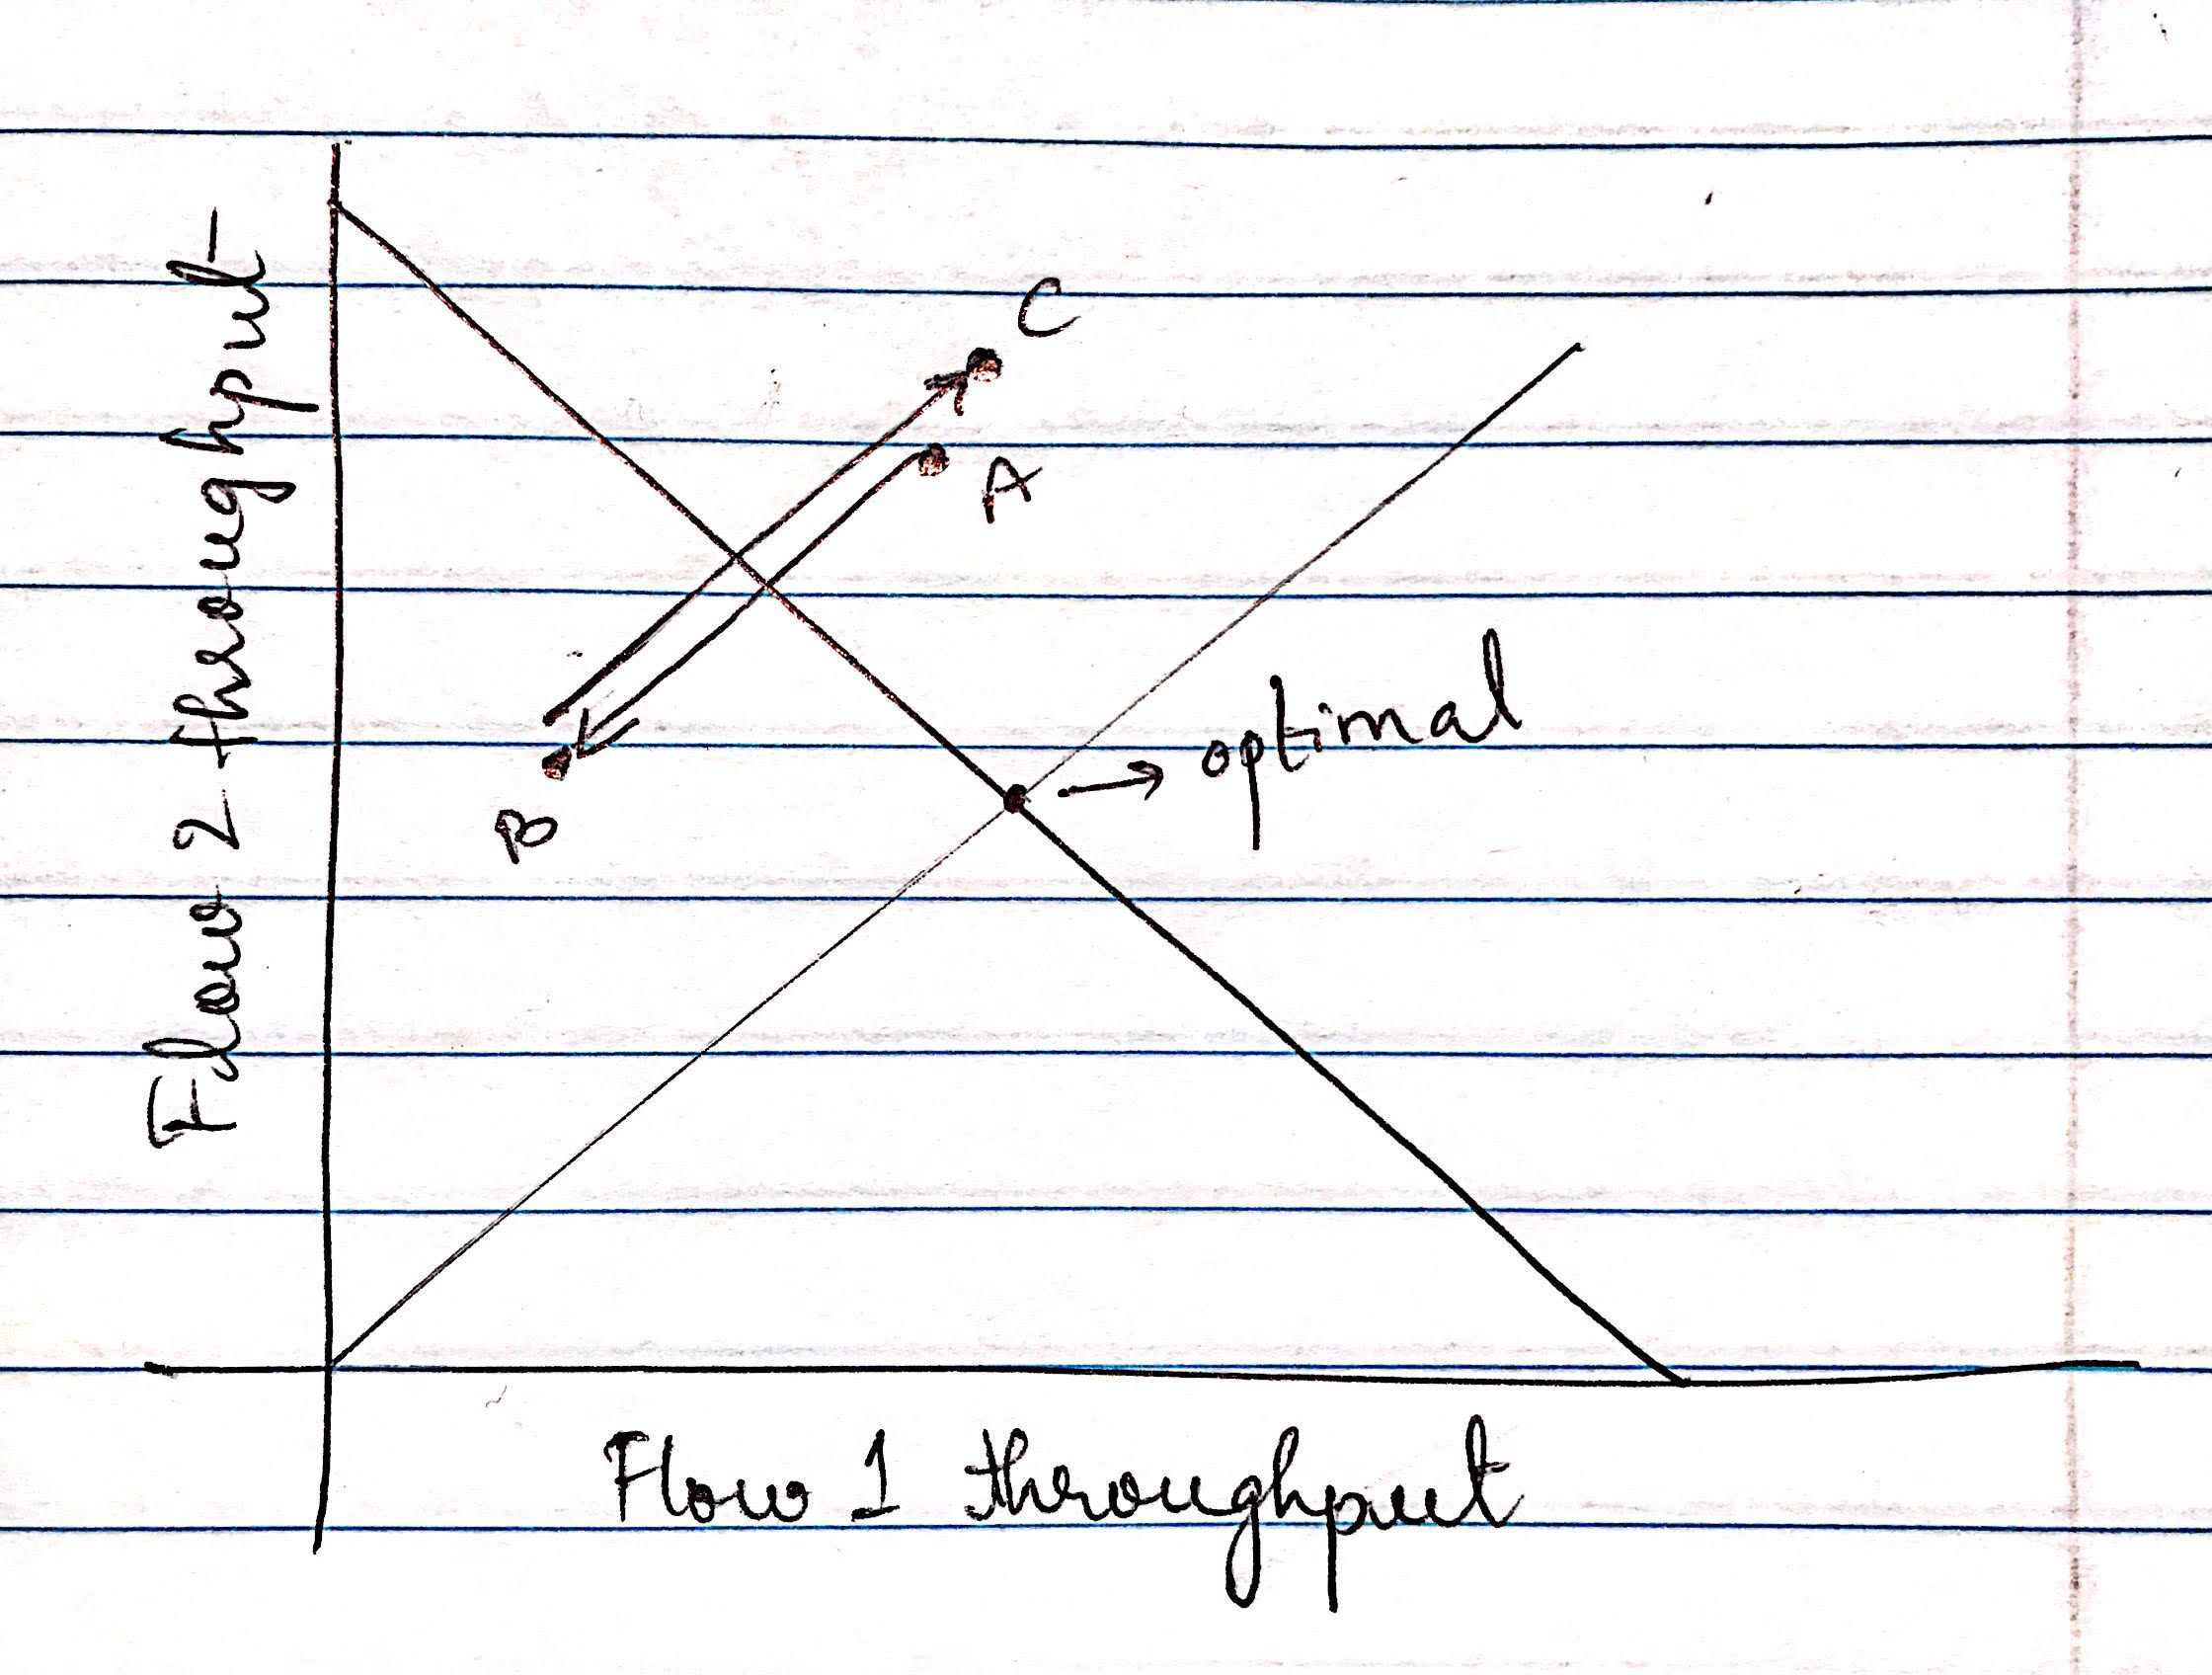 Flow 2 throughput
C
A
B
→ optimal
Flow 1 throughput